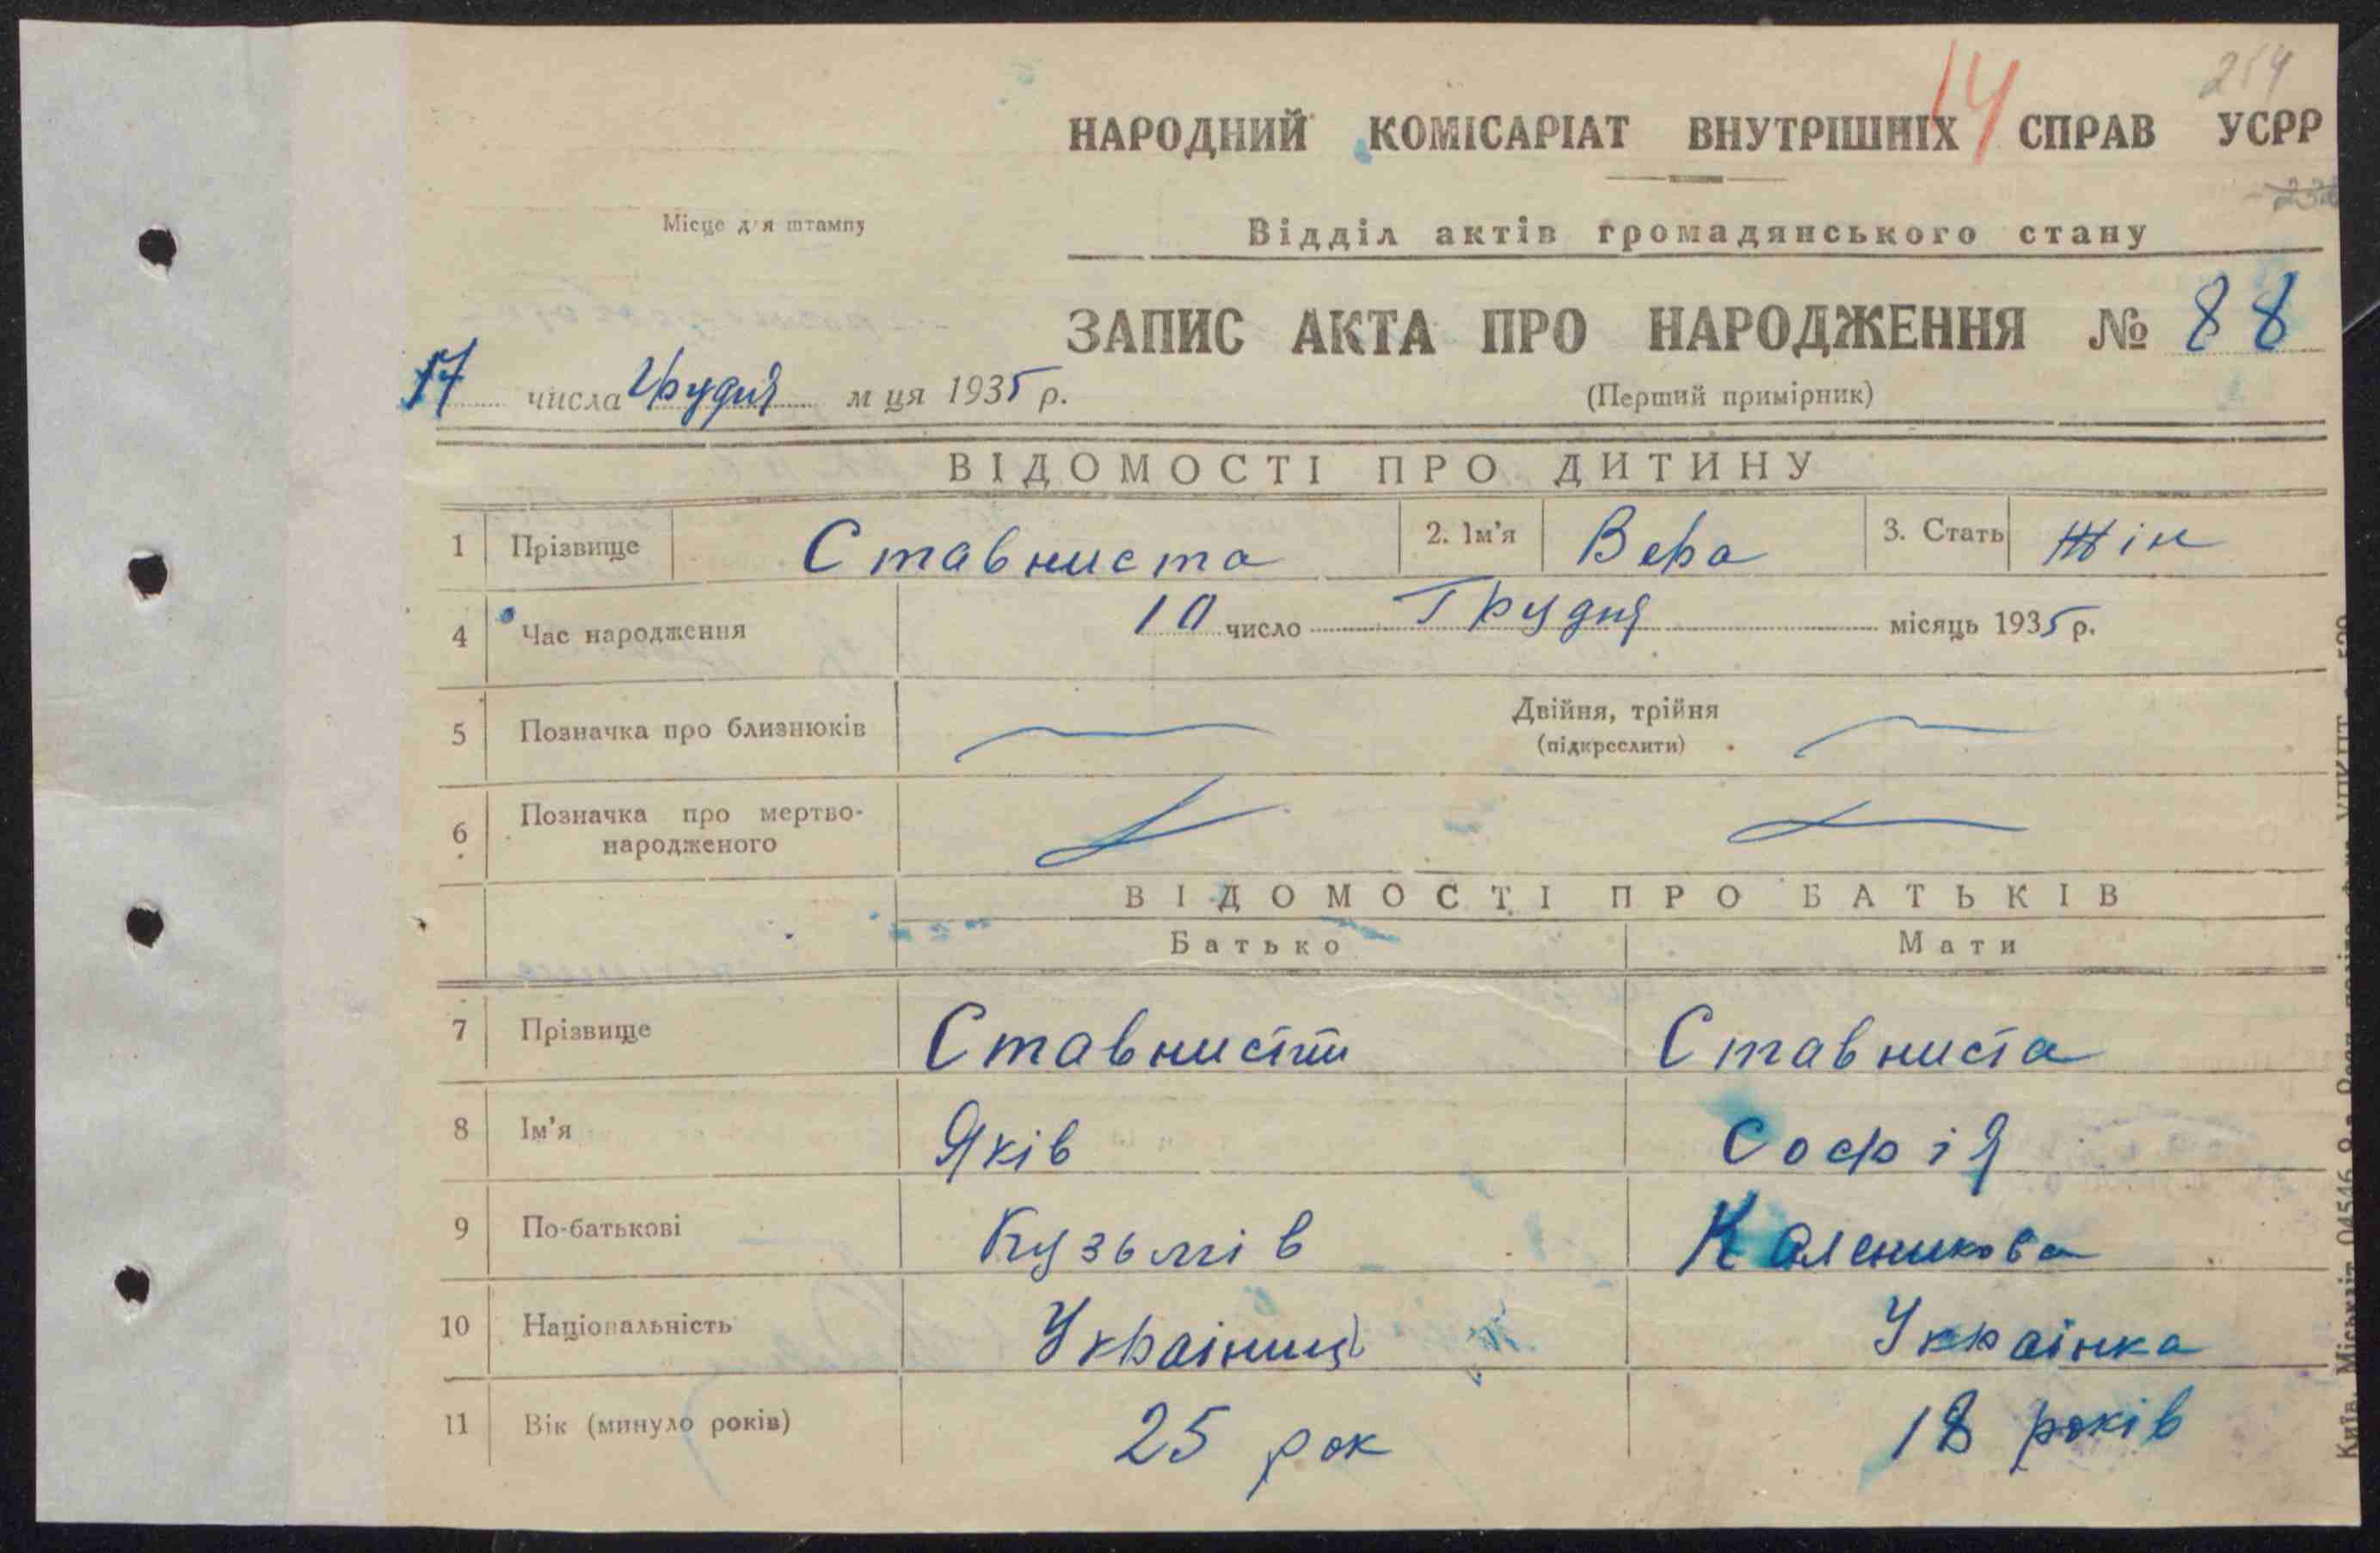 14 254
НАРОДНИЙ КОМІСАРІАТ ВНУТРІШНІХ СПРАВ УСРР
Місце для штампу
Відділ актів громадянського стану
ЗАПИС АКТА ПРО НАРОДЖЕННЯ № 88
17 числа Грудня м ця 1935 р.
(Перший примірник)
ВІДОМОСТІ ПРО ДИТИНУ
1 Прізвище Ставниста 2. Ім'я Вера 3. Стать Жін
4 Час народження 10 число Грудня місяць 1935 р.
5 Позначка про близнюків Двійня, трійня
(підкреслити)
6 Позначка про мертво-
народженого
ВІДОМОСТІ ПРО БАТЬКІВ
Батько Мати
7 Прізвище Ставнистий Ставниста
8 Ім'я Яків Софія
9 По-батькові Кузьмів Каленикова
10 Національність Украінец Украінка
11 Вік (минуло років) 25 рок 18 років